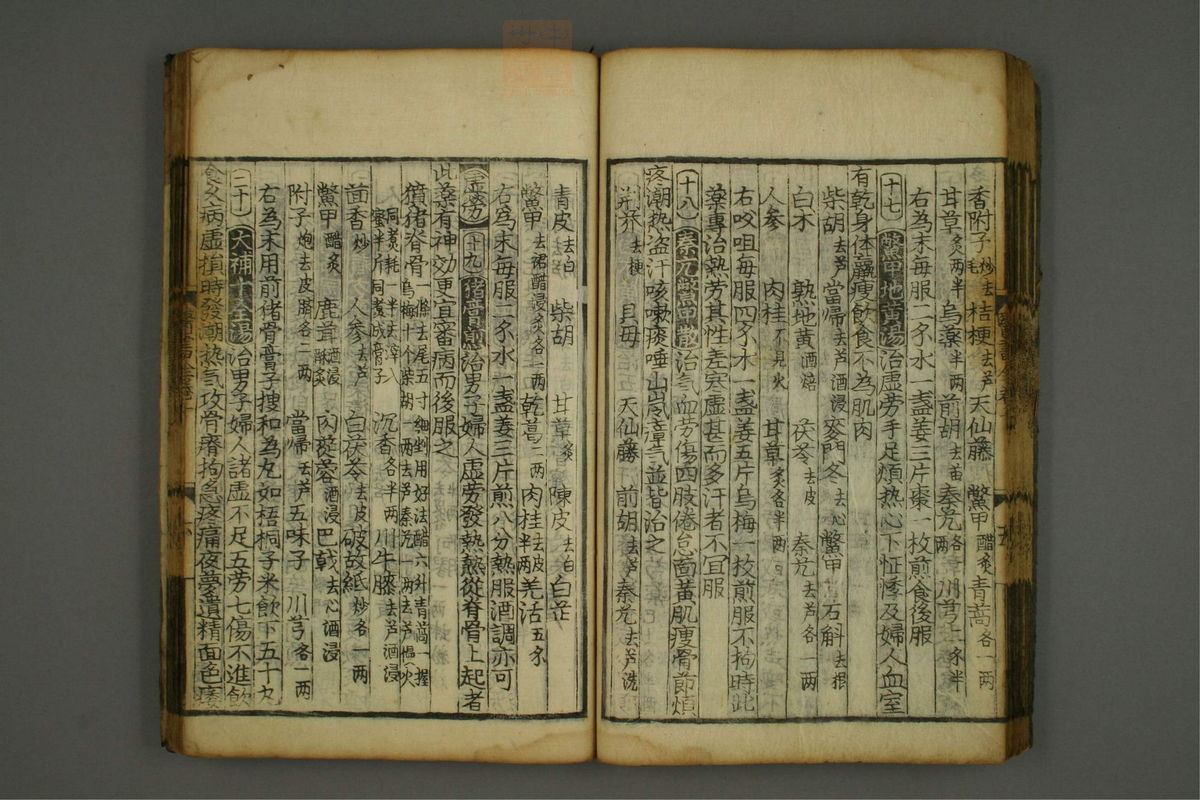 香附子炒去毛 桔梗去芦 天仙藤 鱉甲醋炙 青蒿各一两
甘草炙两半 烏藥半两 前胡去苗 秦艽各 川芎二㒰半
右為末每服二㒰水一盞姜三片棗一枚煎食後服
(十七)鱉甲地黄湯治虚劳手足煩热心下怔悸及婦人血室
有乾身体羸瘦飲食不為肌肉
柴胡去芦 當帰去芦酒浸 麥門冬去心 鱉甲 石斛去根
白术 熟地黄酒焙 茯苓去皮 秦艽去芦各一两
人参 肉桂不見火 甘草炙各半两
右㕮咀每服四㒰水一盞姜五片烏梅一枚煎服不拘時此
藥專治熱劳其性差寒虚甚而多汗者不宜服
(十八)秦艽鱉甲散治氣血劳傷四肢倦怠面黄肌瘦骨節煩
疼潮热盗汗咳嗽痰唾山嵐瘴氣並皆治之
荆芥去梗 貝毋 天仙藤 前胡去芦 秦艽去芦洗
青皮去白 柴胡 甘草炙 陳皮去白 白芷
鱉甲去裙醋浸炙各一两 乾葛二两 肉桂去皮半两 羌活五㒰
右為末每服二㒰水一盞姜三片煎八分熱服酒調亦可
虚劳(十九)猪骨煎治男子婦人虚劳發熱熱從脊骨上起者
此藥有神効更宜審病而後服之
獖猪脊骨一條去尾五寸細剉用好法醋六升青蒿一握烏梅十个柴胡一两去芦秦艽一两去芦
同煮耗一半去滓入蜜半斤同煮成膏子 沉香各半两 川牛膝去芦酒浸
茴香炒 人参去芦 白茯苓去皮 破故紙炒各一两
鱉甲醋炙 鹿茸酒浸酥炙 肉蓯蓉酒浸 巴戟去心酒浸
附子炮去皮臍各二两 當帰去芦 五味子 川芎各一两
右為末用前猪骨膏子搜和為丸如梧桐子米飲下五十丸
(二十)大補十全湯治男子婦人諸虚不足五劳七傷不進飲
食久病虚損時發潮热氣攻骨脊拘急疼痛夜夢遺精面色痿